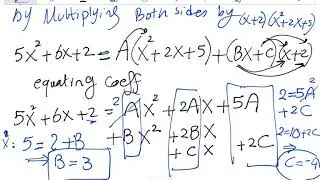 by Multiplying Both sides by (x+2)(x²+2x+5)
5x²+6x+2 = A(x²+2x+5)+(Bx+C)(x+2)
equating coeff
5x²+6x+2 = ²A x² + 2A x + 5A
+B x² +2B x
+C x +2C
x²: 5=2+B
B=3
2=5A
+2C
2=10+2C
C=-4